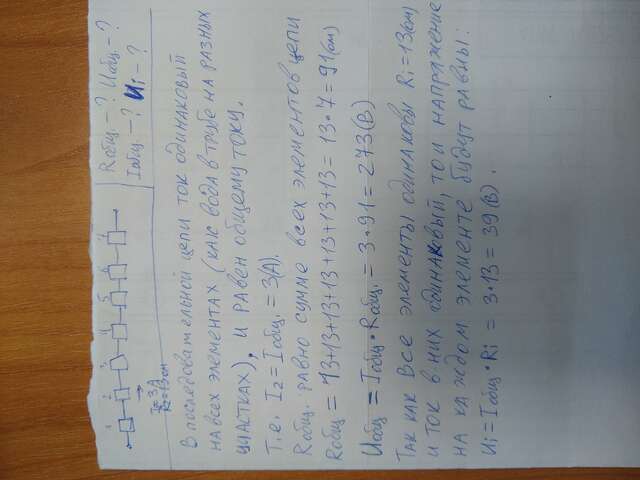 1 2 3 4 5 6 7
I₂ = 3A
Ri = 13 ом
Rобщ. - ? Uобщ. - ?
Iобщ. - ? Ui - ?
В последовательной цепи ток одинаковый
на всех элементах (как вода в трубе на разных
участках), и равен общему току.
Т.е. I₂ = Iобщ. = 3(А).
Rобщ. равно сумме всех элементов цепи
Rобщ = 13+13+13+13+13+13+13 = 13•7 = 91(ом)
Uобщ = Iобщ • Rобщ. = 3•91 = 273(В)
Так как все элементы одинаковы Ri = 13(ом)
и ток в них одинаковый, то и напряжение
на каждом элементе будут равны:
Ui = Iобщ • Ri = 3•13 = 39(В).